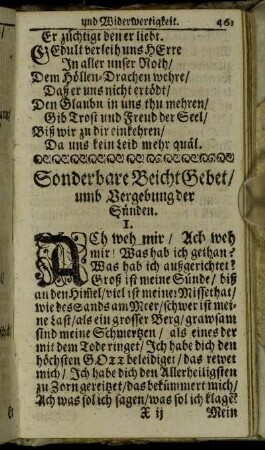 und Widerwertigkeit. 461
Er züchtigt den er liebt.
GEdult verleih uns HErre
In aller unser Noth/
Dem Höllen-Drachen wehre/
Daß er uns nicht ertödt/
Den Glaubn in uns thu mehren/
Gib Trost und Freud der Seel/
Biß wir zu dir einkehren/
Da uns kein Leid mehr quäl.
Sonderbare Beicht Gebet/
umb Vergebung der
Sünden.
I.
ACh weh mir/ Ach weh
mir/ Was hab ich gethan?
Was hab ich außgerichtet?
Groß ist meine Sünde/ biß
an den Himel/ viel ist meiner Missethat/
wie des Sands am Meer/ schwer ist mei-
ne Last/ als ein grosser Berg/ grawsam
sind meine Schmertzen/ als eines der
mit dem Tode ringet/ Ich habe dich den
höchsten GOtt beleidiget/ das rewet
mich/ Ich habe dich den Allerheiligsten
zu Zorn gereitzet/ das bekümmert mich/
Ach was sol ich sagen/ was sol ich klagẽ?
X ij Mein